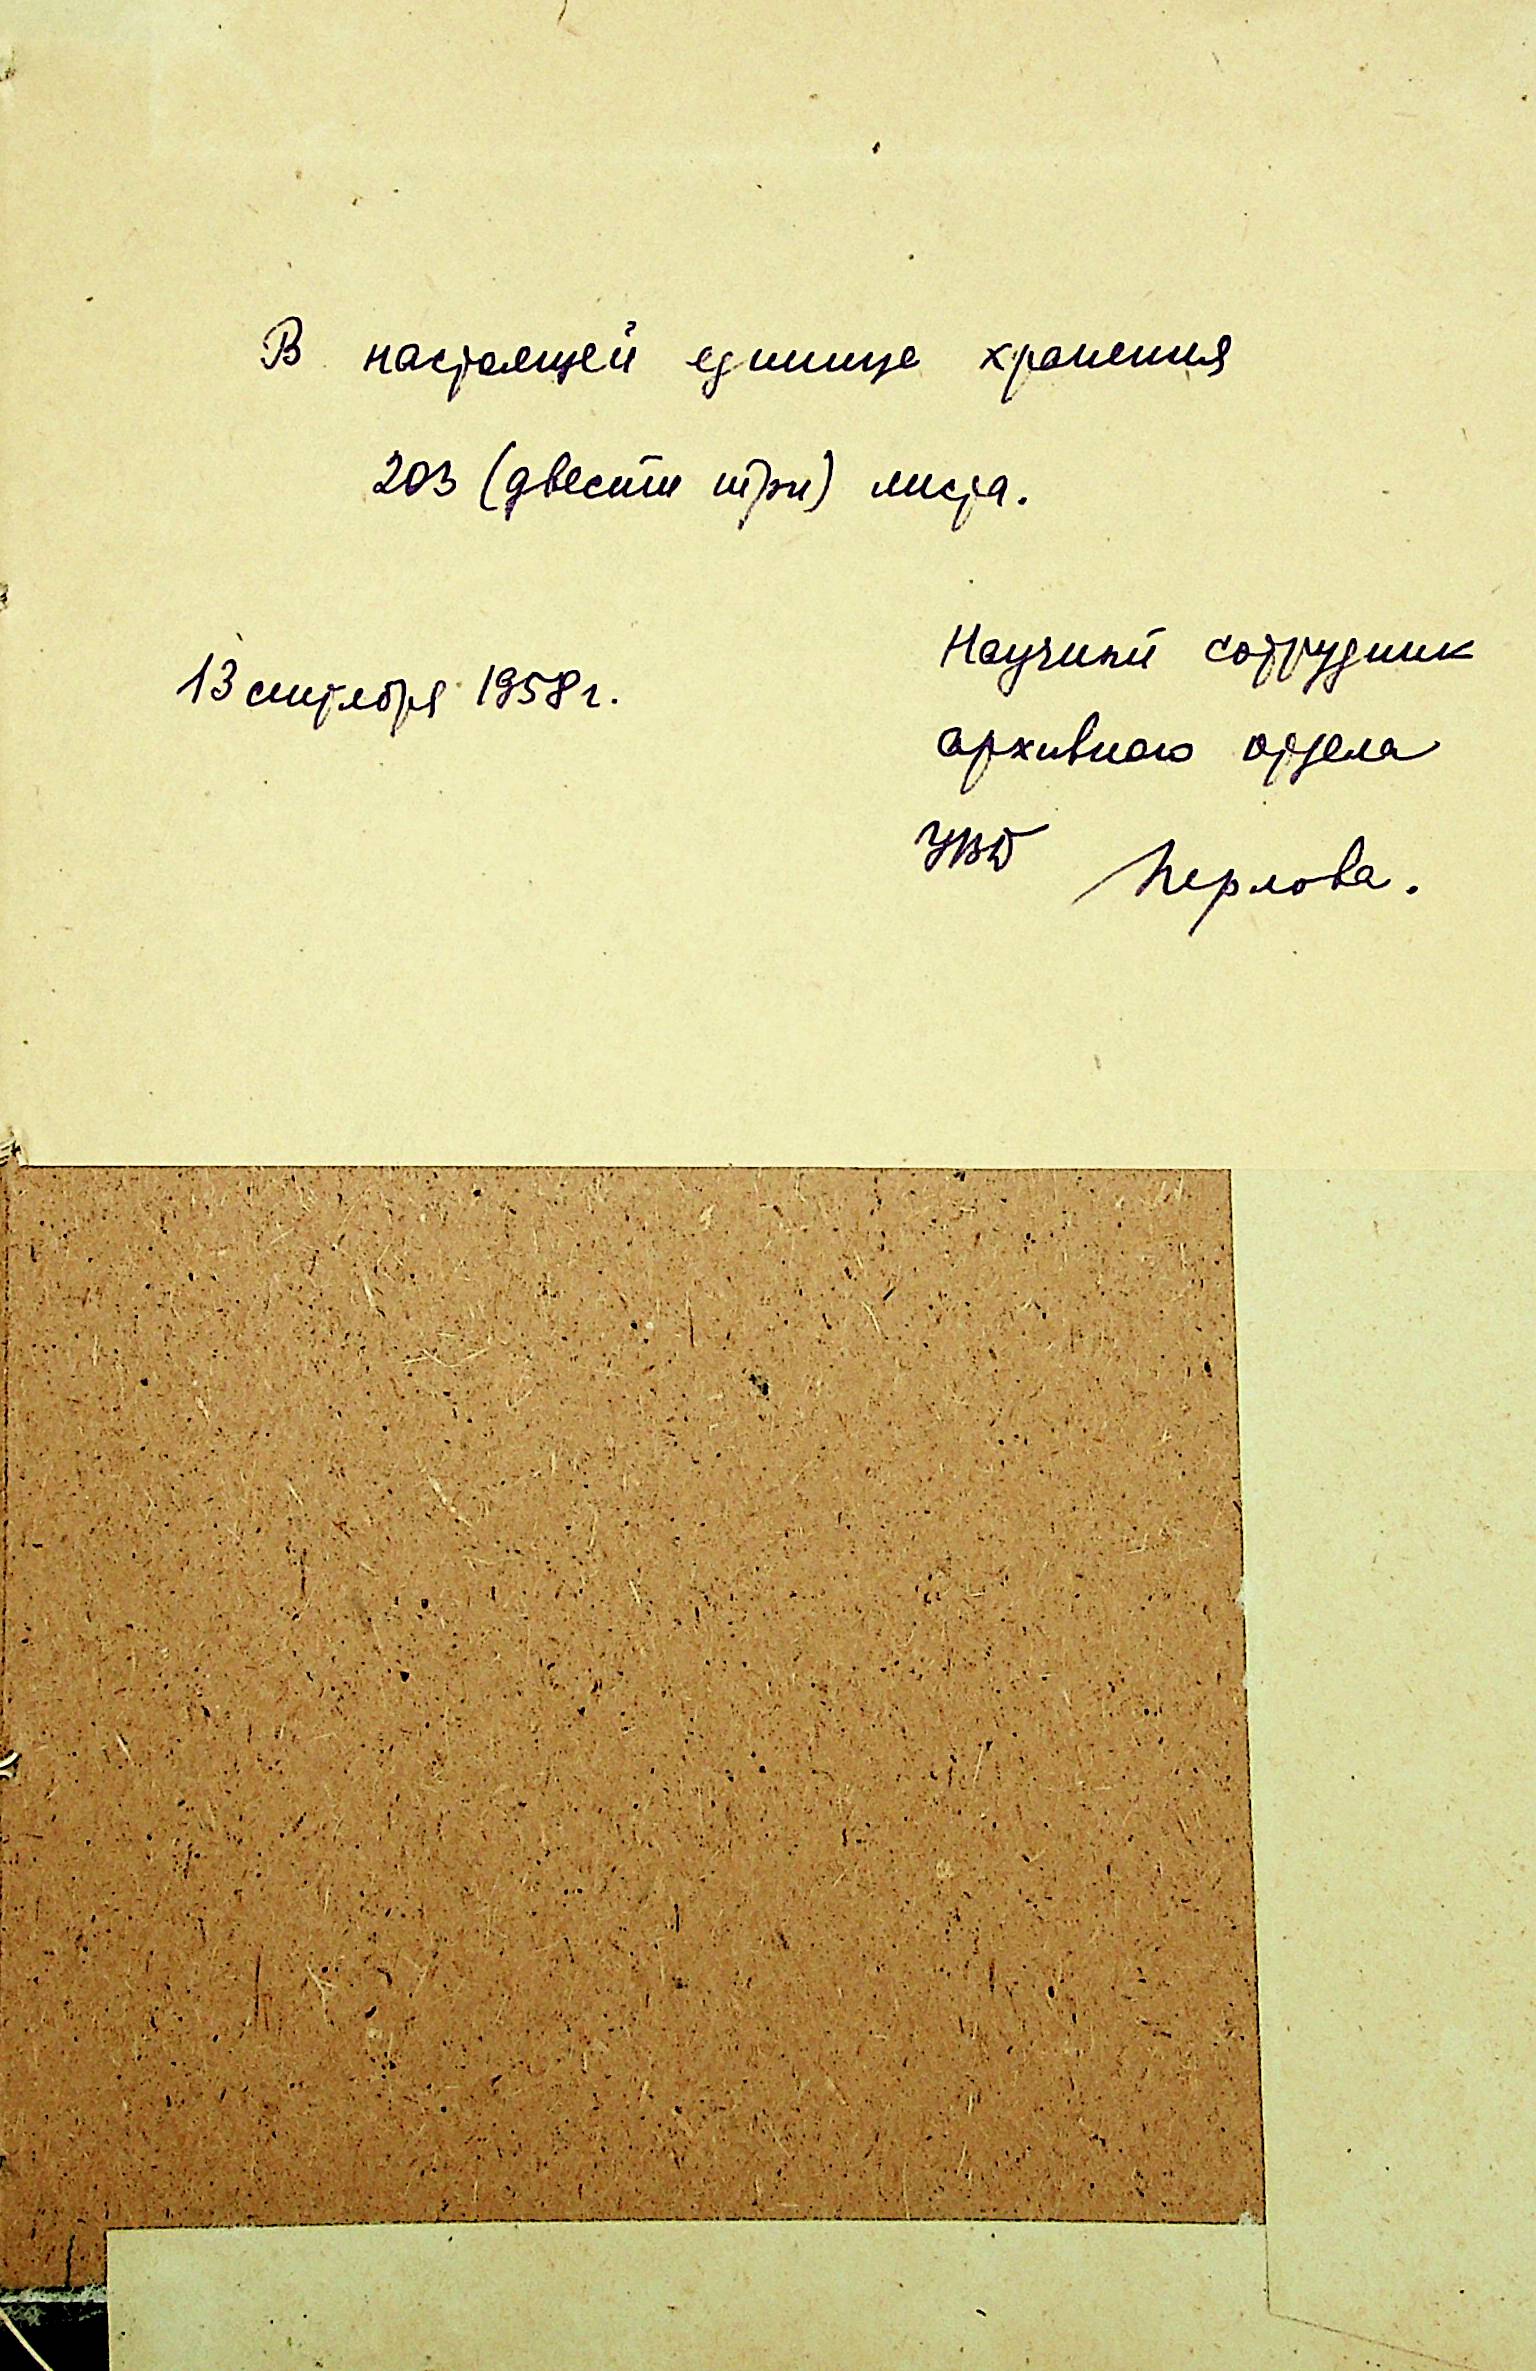 В настоящей единице хранения
203 (двести три) листа.
13 сентября 1958 г.
Научный сотрудник
архивного отдела
УВД Перлова.